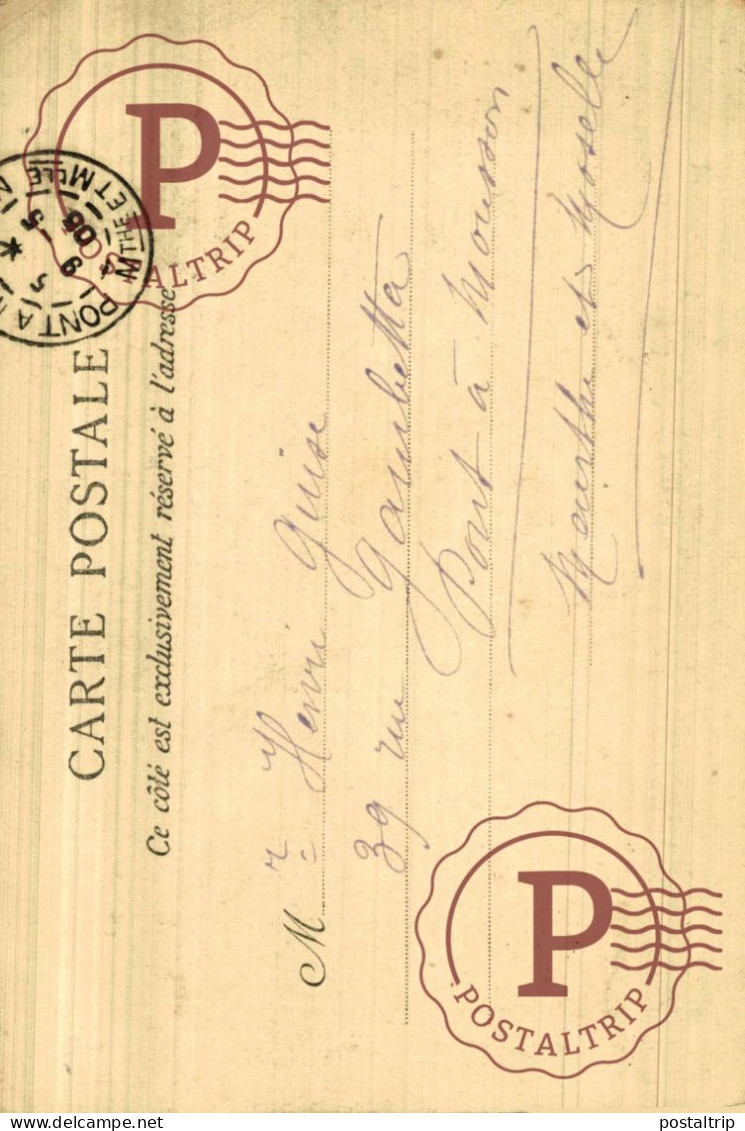 CARTE POSTALE
Ce côté est exclusivement réservé à l'adresse
Mr Henri Guise
39 rue Gambetta
Pont à Mousson
Meurthe et Moselle
PONT A
MTHE ET MLLE
5
9
05
POSTALTRIP
POSTALTRIP
www.delcampe.net
postaltrip